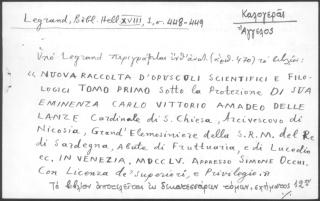 Legrand, Bibl. Hell XVIII, 1, σ. 448-449
Καλογερᾶς
Ἄγγελος
Ὑπὸ Legrand περιγράφεται ὑπ' ἀριθ. 470 τὸ βιβλίον:
« NUOVA RACCOLTA D'OPUSCOLI SCIENTIFICI E FILO-
LOGICI TOMO PRIMO Sotto la Protezione DI SUA
EMINENZA CARLO VITTORIO AMADEO DELLE
LANZE Cardinale di S. Chiesa, Arcivescovo di
Nicosia, Grand'Elemosiniere della S.R.M. del Re
di Sardegna, Abate di Fruttuaria, e di Lucedio
ec, IN VENEZIA, MDCCLV. Appresso SIMONE OCCHI.
Con Licenza de' Superiori, e Privilegio. »
Τὸ βιβλίον ἀποτελεῖται ἐκ δεκατεσσάρων τόμων, σχήματος 12ου